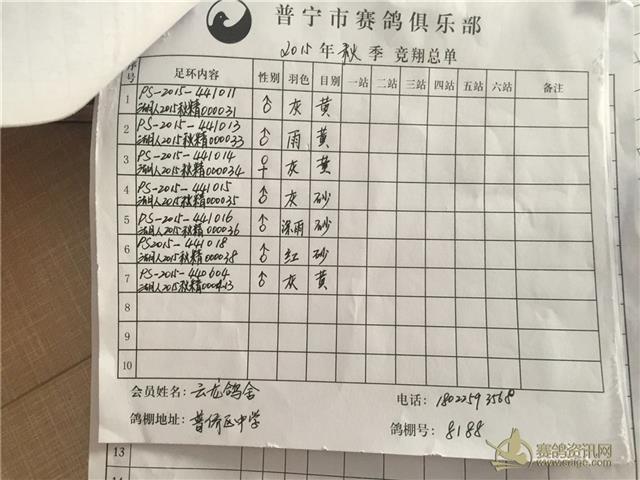 普宁市赛鸽俱乐部
2015年秋季 竞翔总单
序号 足环内容 性别 羽色 目别 一站 二站 三站 四站 五站 六站 备注
1 PS-2015-441011 ♂ 灰 黄
湖人2015秋精000031
2 PS-2015-441013 ♂ 雨 黄
湖人2015秋精000033
3 PS-2015-441014 ♀ 灰 黄
湖人2015秋精000034
4 PS-2015-441015 ♂ 灰 砂
湖人2015秋精000035
5 PS-2015-441016 ♂ 深雨 砂
湖人2015秋精000036
6 PS2015-441018 ♂ 红 砂
湖人2015秋精000038
7 PS-2015-440604 ♂ 灰 黄
湖人2015秋精000413
8
9
10
会员姓名:云龙鸽舍 电话:18022593568
鸽棚地址:普侨区中学 鸽棚号:8188
13
赛鸽资讯网
www.saige.com